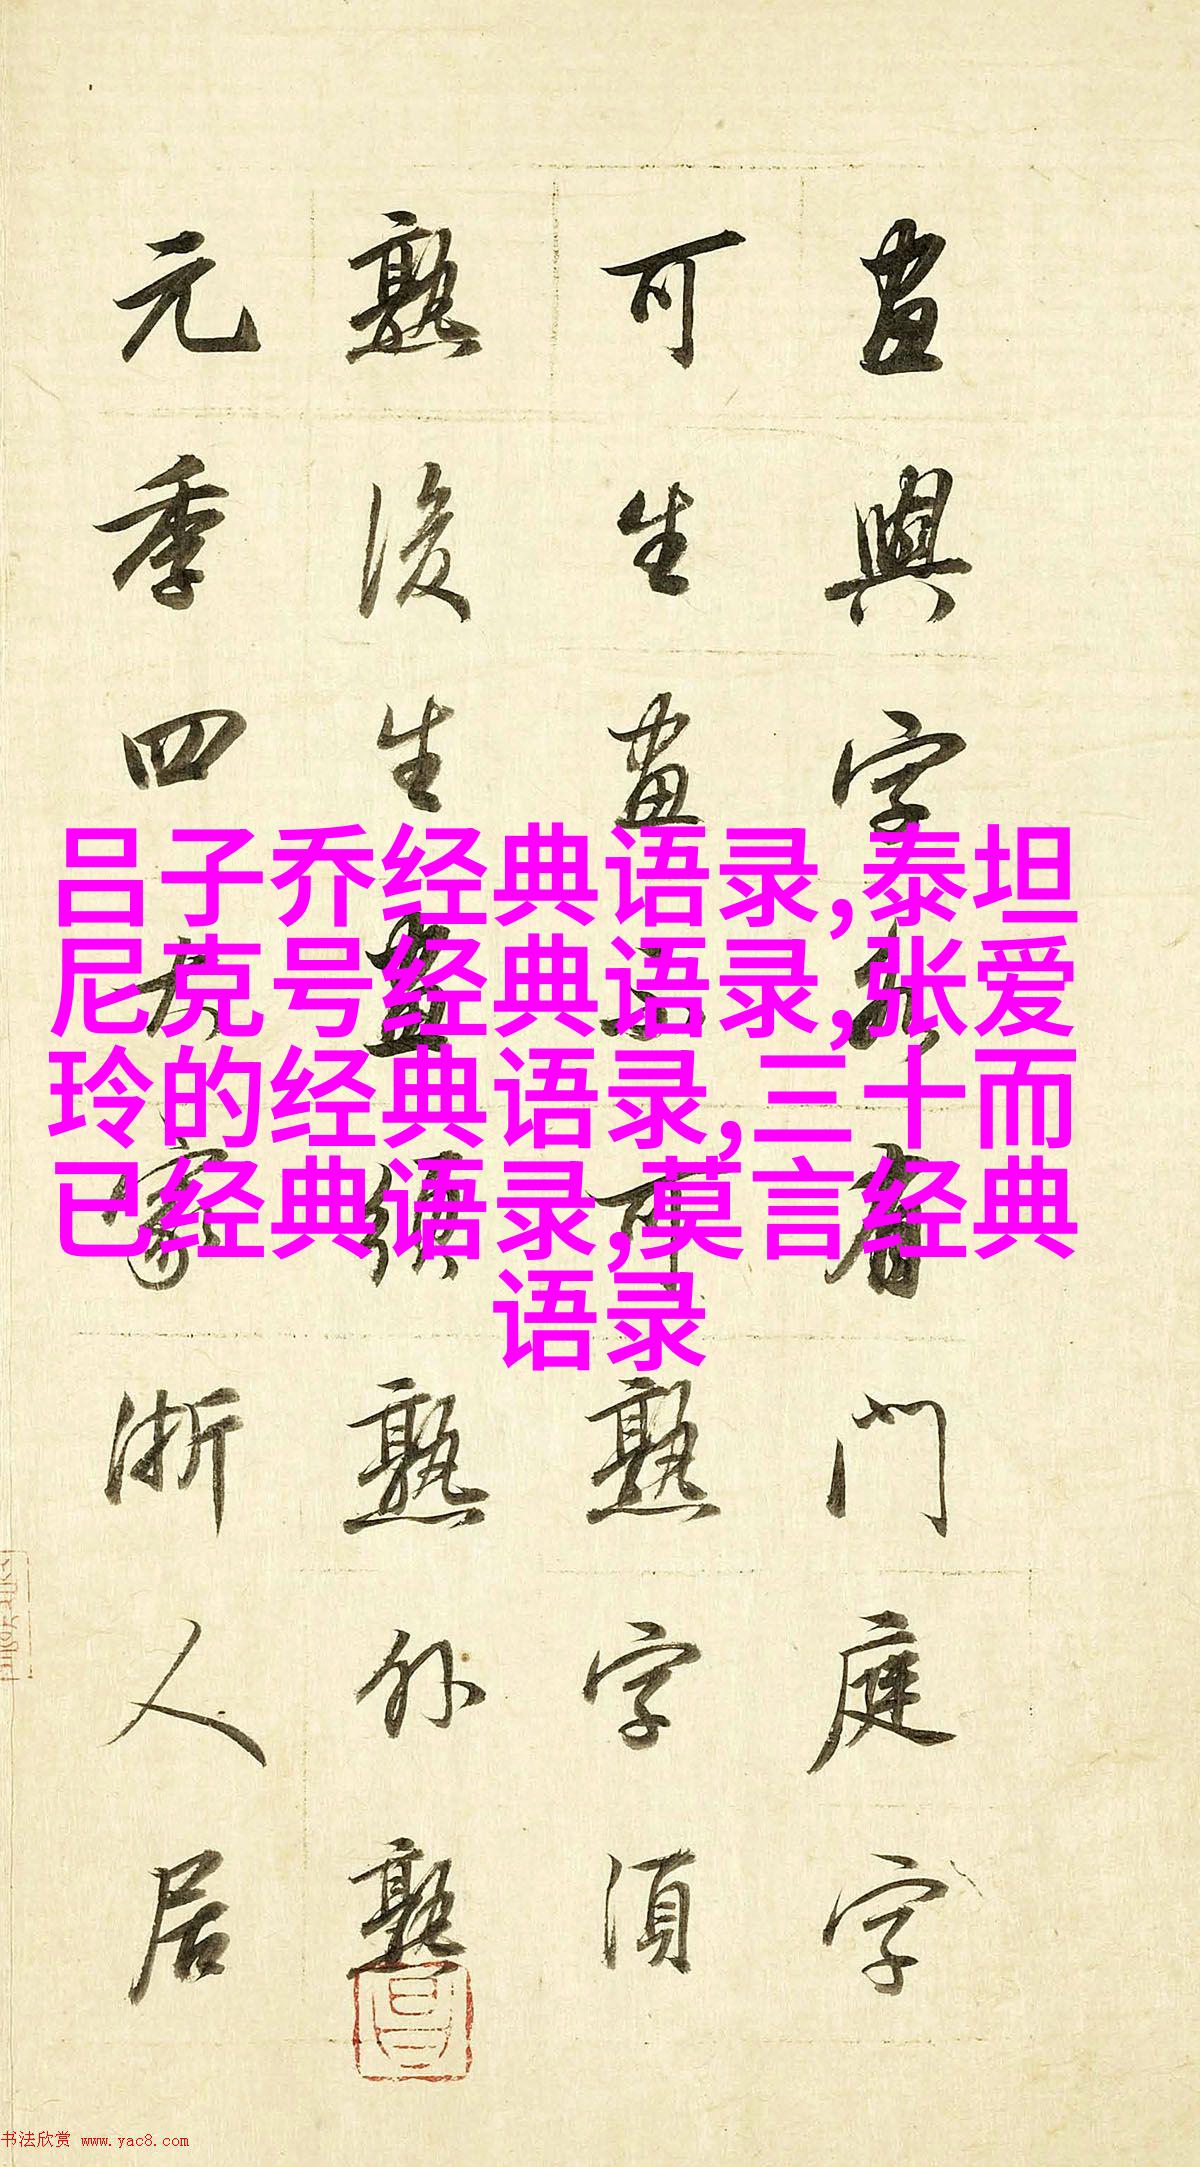 畫與字各有門庭字
可生畫不可熟字須
熟後生畫須熟外熟
元季四大家浙人居
吕子乔经典语录,泰坦
尼克号经典语录,张爱
玲的经典语录,三十而
已经典语录,莫言经典
语录
书法欣赏 www.yac8.com